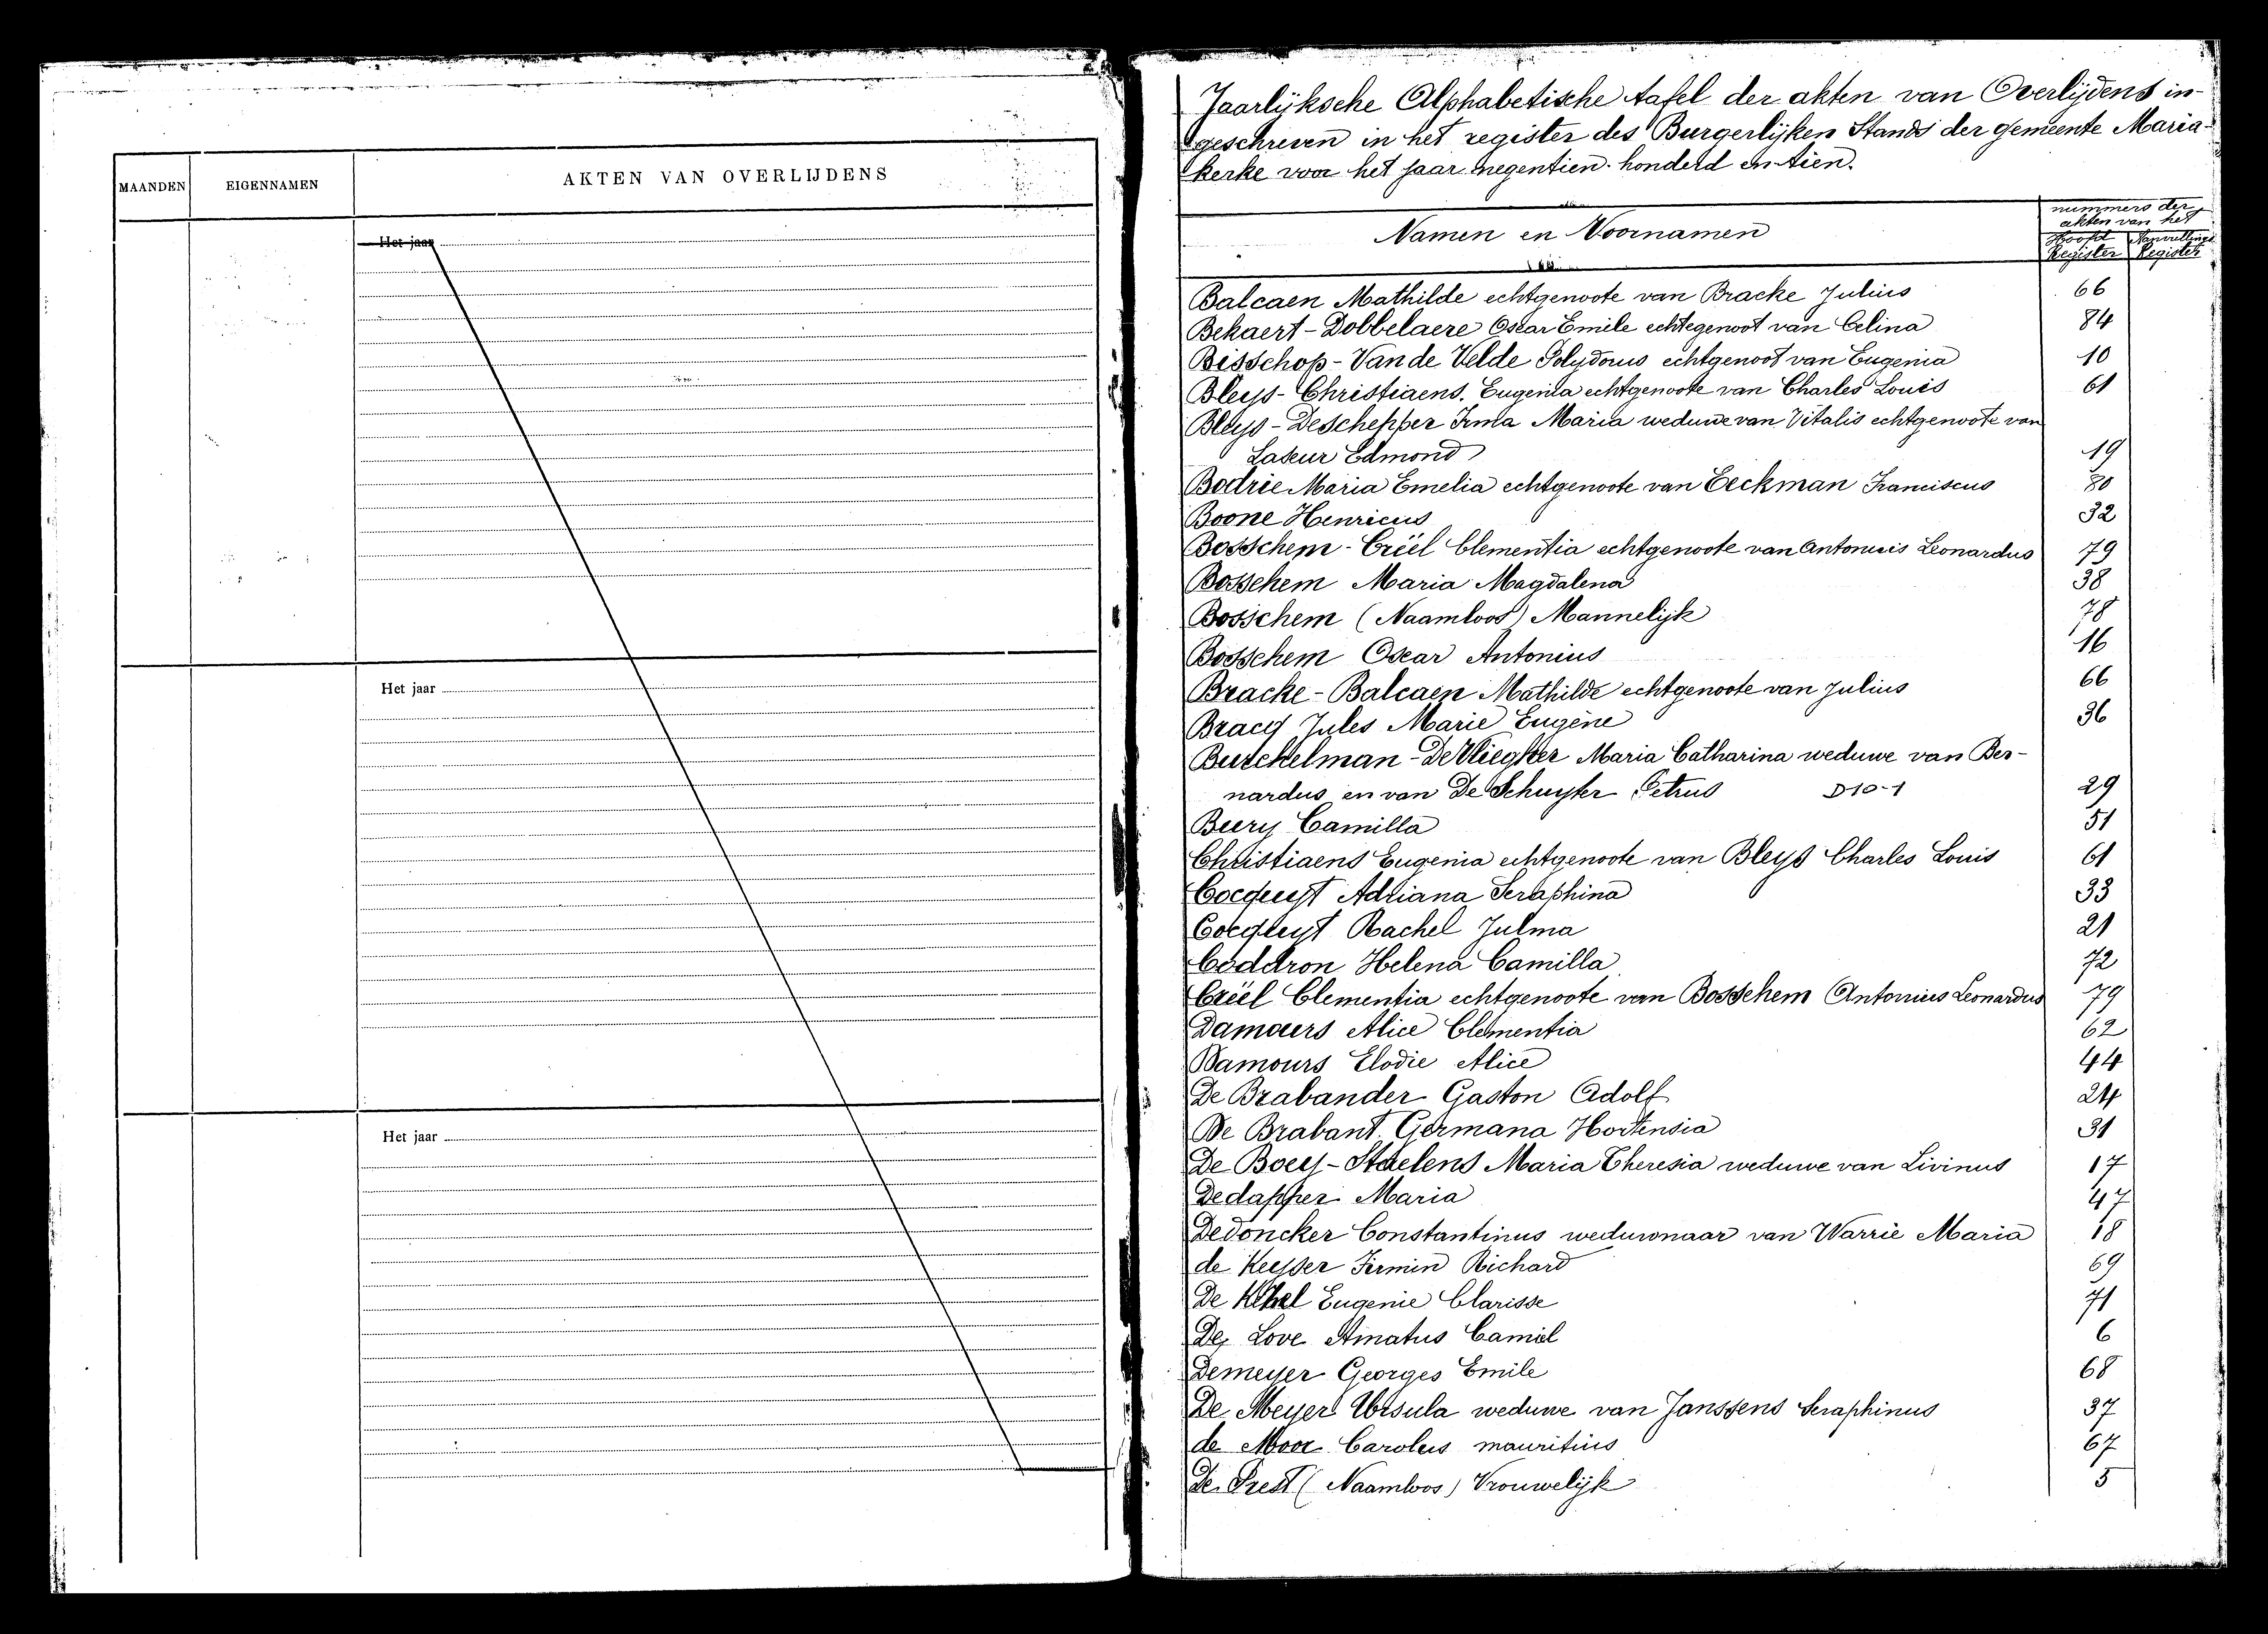 MAANDEN EIGENNAMEN AKTEN VAN OVERLIJDENS
Het jaar
Het jaar
Het jaar
Jaarlijksche Alphabetische tafel der akten van Overlijdens in-
geschreven in het register des Burgerlijken Stands der gemeente Maria-
kerke voor het jaar negentien honderd en tien.
Namen en Voornamen
nummers der
akten van het
Hoofd Aanvullings
Register Register
Balcaen Mathilde echtgenoote van Bracke Julius 66
Bekaert-Dobbelaere Oscar Emile echtegenoot van Celina 84
Bisschop-Van de Velde Polydorus echtgenoot van Eugenia 10
Bleys-Christiaens. Eugenia echtgenoote van Charles Louis 61
Bleys-Deschepper Irma Maria weduwe van Vitalis echtgenoote van
Laseur Edmond 19
Bodrie Maria Emelia echtgenoote van Eeckman Franciscus 80
Boone Henricus 32
Bosschem-Criel Clementia echtgenoote van Antonius Leonardus 79
Bosschem Maria Magdalena 38
Bosschem (Naamloos) Mannelijk 78
Bosschem Oscar Antonius 16
Bracke-Balcaen Mathilde echtgenoote van Julius 66
Bracq Jules Marie Eugène 36
De Vliegher Maria Catharina weduwe van Ber-
nardus en van De Schuyter Petrus D10-1 29
Bury Camilla 51
Christiaens Eugenia echtgenoote van Bleys Charles Louis 61
Cocquyt Adriana Seraphina 33
Cocquyt Rachel Julma 21
Coddron Helena Camilla 72
Criel Clementia echtgenoote van Bosschem Antonius Leonardus 79
Damours Alice Clementia 62
Damours Elodie Alice 44
De Brabander Gaston Adolf 24
De Brabant Germana Hortensia 31
De Boey-Staelens Maria Theresia weduwe van Livinus 17
Dedapper Maria 47
Dedoncker Constantinus weduwnaar van Warrie Maria 18
de Keyser Firmin Richard 69
De Eugenie Clarisse 71
De Love Amatus Camiel 6
Demeyer Georges Emile 68
De Meyer Ursula weduwe van Janssens Seraphinus 37
de Moor Carolus mauritius 67
De Prest (Naamloos) Vrouwelijk 5